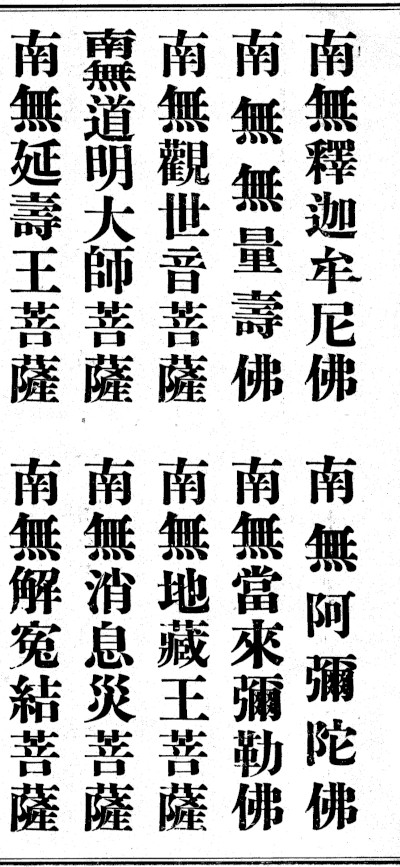 南無釋迦牟尼佛
南無阿彌陀佛
南無無量壽佛
南無當來彌勒佛
南無觀世音菩薩
南無地藏王菩薩
南無道明大師菩薩
南無消息災菩薩
南無延壽王菩薩
南無解寃結菩薩